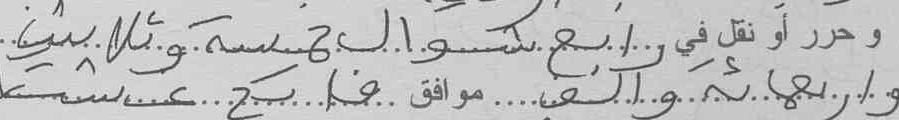 و حرر أو نقل في رابع شوال خمسة وثلاثين
واربعمائة وألف موافق فاتح غشت